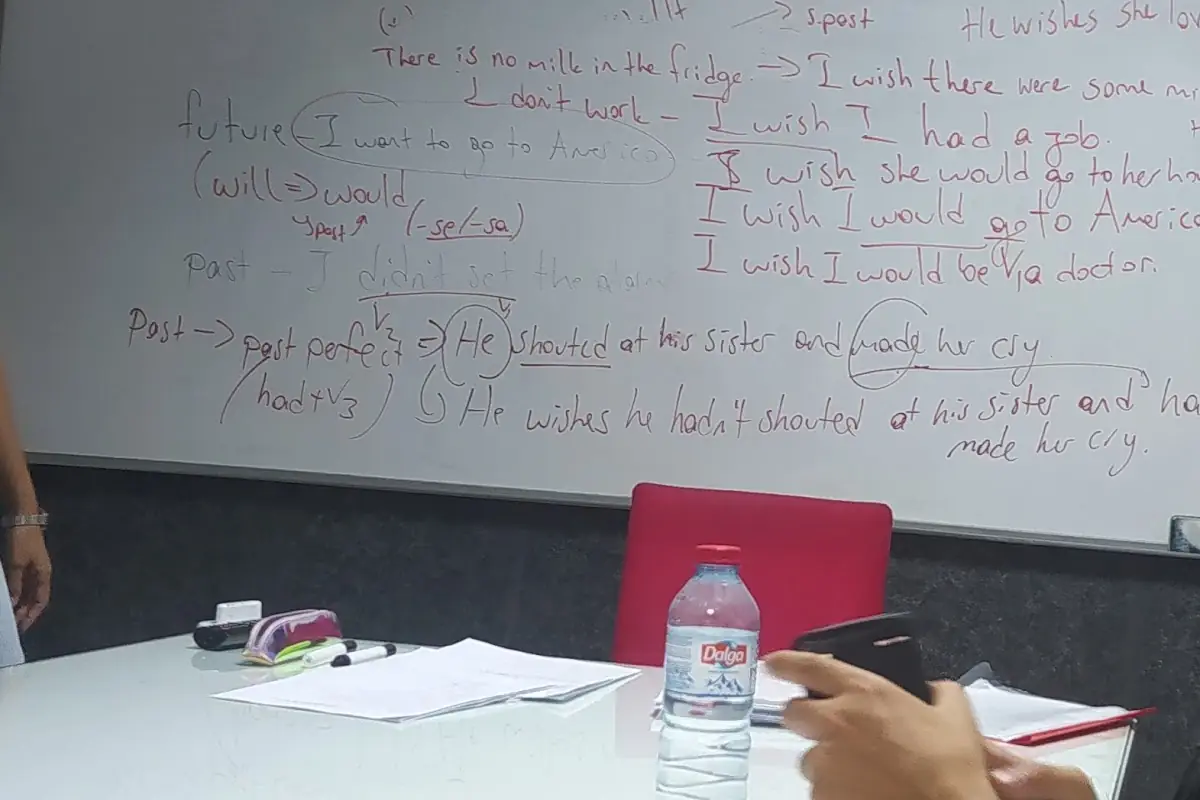 s.past He wishes she lov
There is no milk in the fridge. → I wish there were some mi
I don't work - I wish I had a job.
future - I want to go to America
I wish she would go to her ho
(will => would
I wish I would go to America
past (-se/-sa)
V1
I wish I would be a doctor.
past - I didn't set the alarm
Past → past perfect => He shouted at his sister and made her cry.
V2
(had+V3)
He wishes he hadn't shouted at his sister and ha
made her cry.
Dalga